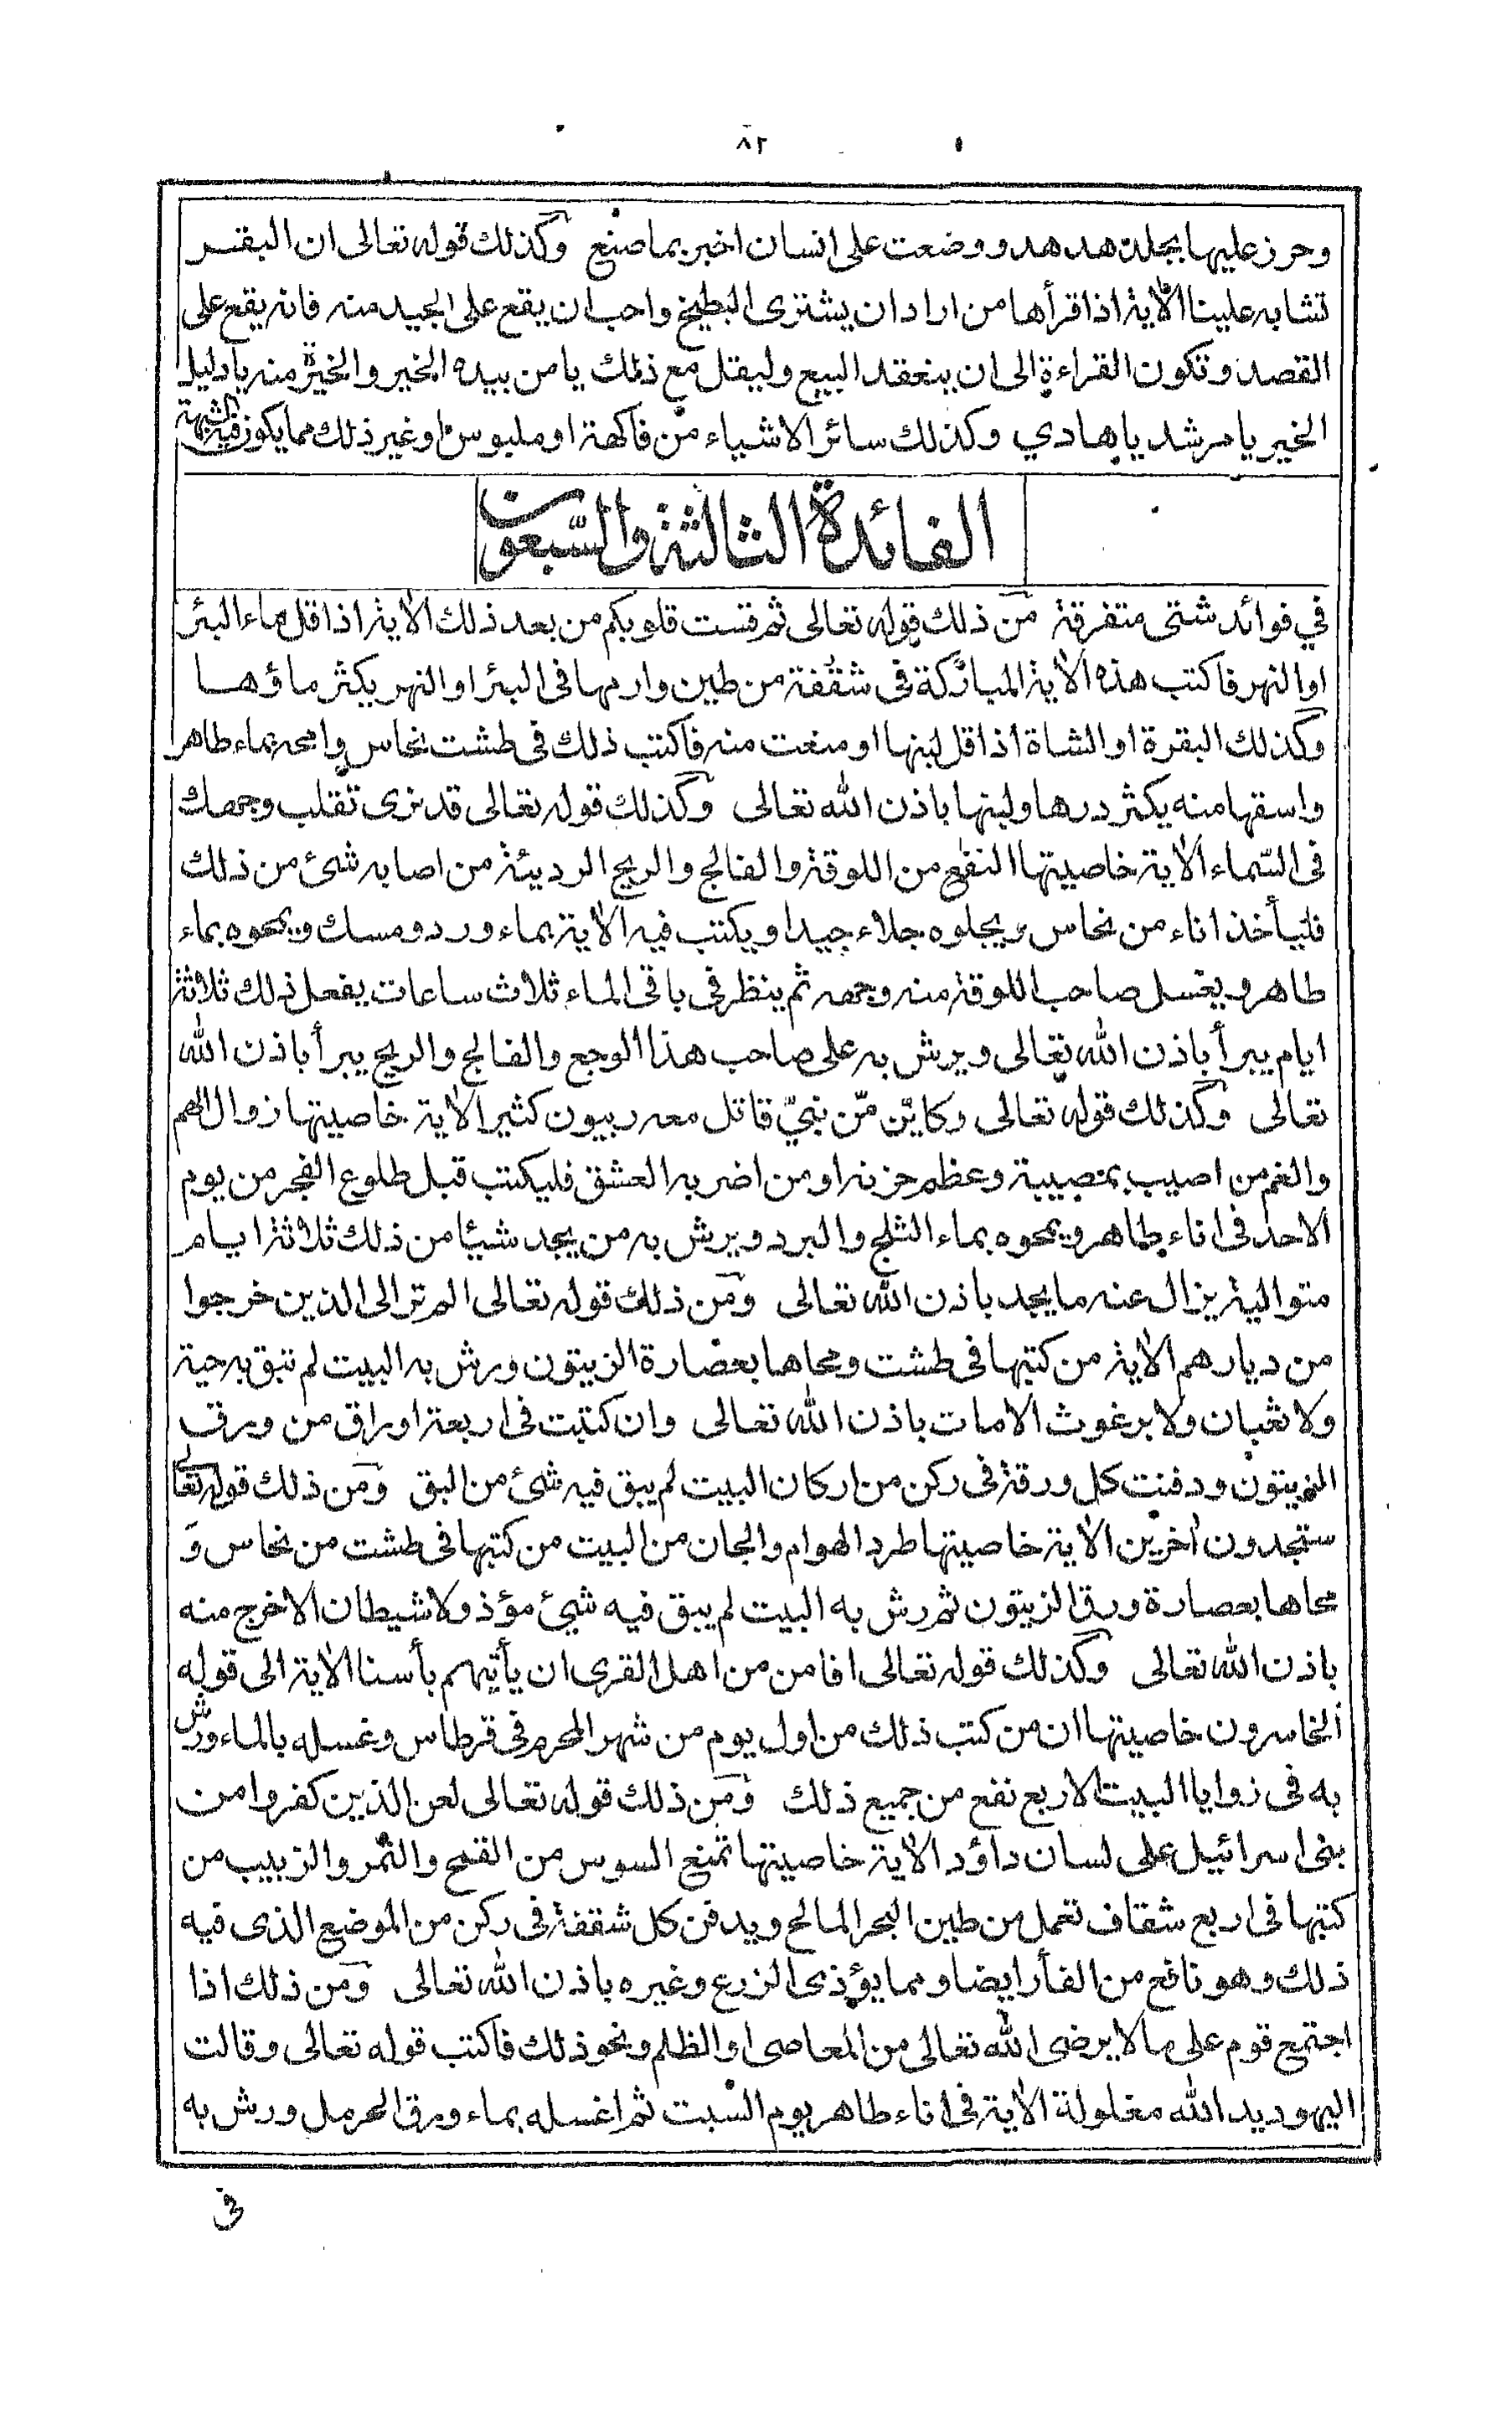 ٨٢
وحرز عليها بجلد هدهد ووضعت على انسان اخبر بما صنع وكذلك قوله تعالى ان البقـر
تشابه علينا الآية اذا قرأها من اراد ان يشترى البطيخ واحب ان يقع على الجيد منه فانه يقع على
القصد وتكون القراءة الى ان ينعقد البيع وليقل مع ذلك يا من بيده الخير والخيرة منه يا دليل
الخير يا مرشد يا هادي وكذلك سائر الاشياء من فاكهة او ملبوس او غير ذلك مما يكون فيه الشبهة
الفائدة الثالثة والسّبعون
في فوائد شتى متفرقة من ذلك قوله تعالى ثم قست قلوبكم من بعد ذلك الآية اذا قل ماء البئر
او النهر فاكتب هذه الآية المباركة فى شقفة من طين وارمها فى البئر او النهر يكثر ماؤهـا
وكذلك البقرة او الشاة اذا قل لبنها او منعت منه فاكتب ذلك فى طشت نحاس وامحه بماء طاهر
واسقها منه يكثر درها ولبنها باذن الله تعالى وكذلك قوله تعالى قد نرى تقلب وجهك
فى السّماء الآية خاصيتها النفع من اللوقة والفالج والريح الرديئة من اصابه شئ من ذلك
فليأخذ اناء من نحاس ويجلوه جلاء جيدا ويكتب فيه الآية بماء ورد ومسك ويمحوه بماء
طاهر ويغسل صاحب اللوقة منه وجهه ثم ينظر فى باقى الماء ثلاث ساعات يفعل ذلك ثلاثة
ايام يبرأ باذن الله تعالى ويرش به على صاحب هذا الوجع والفالج والريح يبرأ باذن الله
تعالى وكذلك قوله تعالى وكايّن مّن نبيّ قاتل معه ربيون كثير الآية خاصيتها زوال الهم
والغم من اصيب بمصيبة وعظم حزنه او من اضر به العشق فليكتب قبل طلوع الفجر من يوم
الاحد فى اناء طاهر ويمحوه بماء الثلج والبرد ويرش به من يجد شيئا من ذلك ثلاثة ايـام
متوالية يزال عنه ما يجد باذن الله تعالى ومن ذلك قوله تعالى الم تر الى الذين خرجوا
من ديارهم الآية من كتبها فى طشت ومحاها بعصارة الزيتون ورش به البيت لم تبق به حية
ولا ثعبان ولا برغوث الا مات باذن الله تعالى وان كتبت فى اربعة اوراق من ورق
الزيتون ودفنت كل ورقة فى ركن من اركان البيت لم يبق فيه شئ من البق ومن ذلك قوله تعالى
ستجدون آخرين الآية خاصيتها طرد الهوام والجان من البيت من كتبها فى طشت من نحاس و
محاها بعصارة ورق الزيتون ثم رش به البيت لم يبق فيه شئ مؤذ ولا شيطان الا خرج منه
باذن الله تعالى وكذلك قوله تعالى افامن من اهل القرى ان يأتيهم بأسنا الآية الى قوله
الخاسرون خاصيتها ان من كتب ذلك من اول يوم من شهر المحرم فى قرطاس وغسله بالماء ورش
به فى زوايا البيت الاربع نفع من جميع ذلك ومن ذلك قوله تعالى لعن الذين كفروا من
بنى اسرائيل على لسان داؤد الآية خاصيتها تمنع السوس من القمح والتمر والزبيب من
كتبها فى اربع شقاف تعمل من طين البحر المالح ويدفن كل شقفة فى ركن من الموضع الذى فيه
ذلك وهو نافع من الفأر ايضا ومما يؤذى الزرع وغيره باذن الله تعالى ومن ذلك اذا
اجتمع قوم على ما لا يرضى الله تعالى من المعاصى او الظلم ونحو ذلك فاكتب قوله تعالى وقالت
اليهود يد الله مغلولة الآية فى اناء طاهر يوم السّبت ثم اغسله بماء ورق الحرمل ورش به
فى